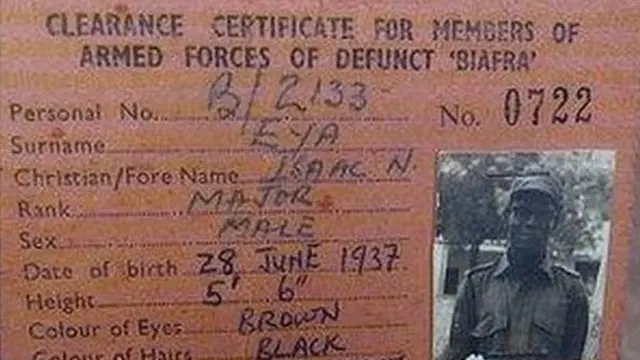 CLEARANCE CERTIFICATE FOR MEMBERS OF
ARMED FORCES OF DEFUNCT 'BIAFRA'
Personal No. B/2133
No. 0722
Surname EYA
Christian/Fore Name ISAAC N.
Rank MAJOR
Sex MALE
Date of birth 28 JUNE 1937
Height 5' 6"
Colour of Eyes BROWN
Colour of Hairs BLACK